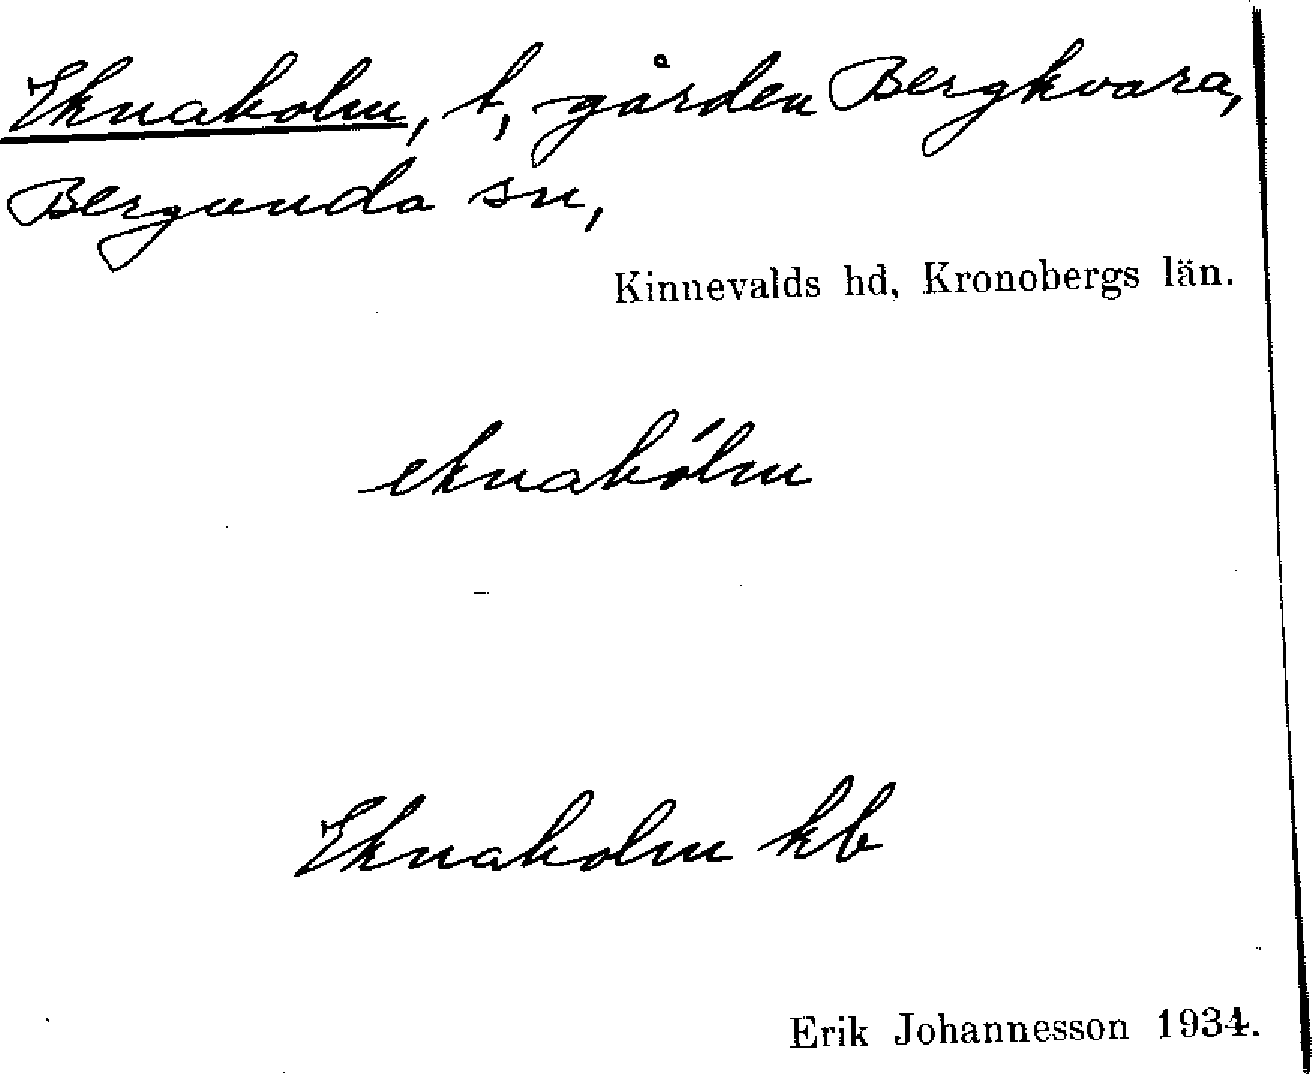 Eknaholm, t, gården Bergkvara,
Bergunda sn,
Kinnevalds hd, Kronobergs län.
eknahólm
Eknaholm kb
Erik Johannesson 1934.